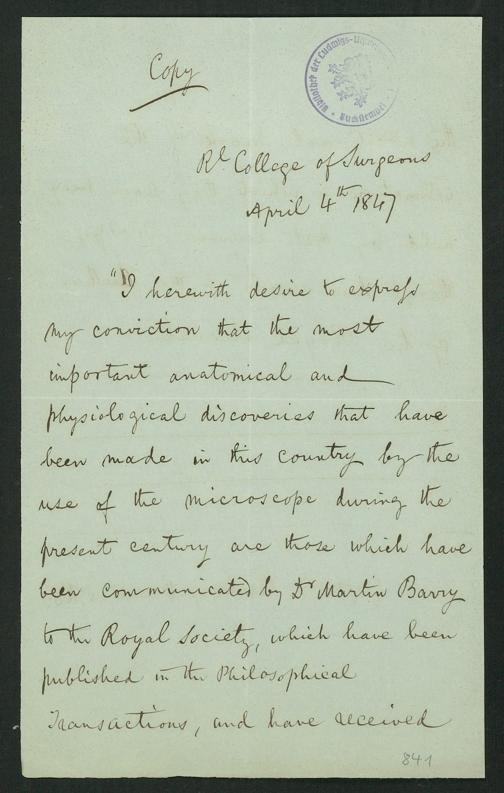 Copy
Bibliothek der Ludwigs-
Rl College of Surgeons
April 4th 1847
"I herewith desire to express
my conviction that the most
important anatomical and
physiological discoveries that have
been made in this country by the
use of the microscope during the
present century are those which have
been communicated by Dr Martin Barry
to the Royal Society, which have been
published in the Philosophical
Transactions, and have received
841